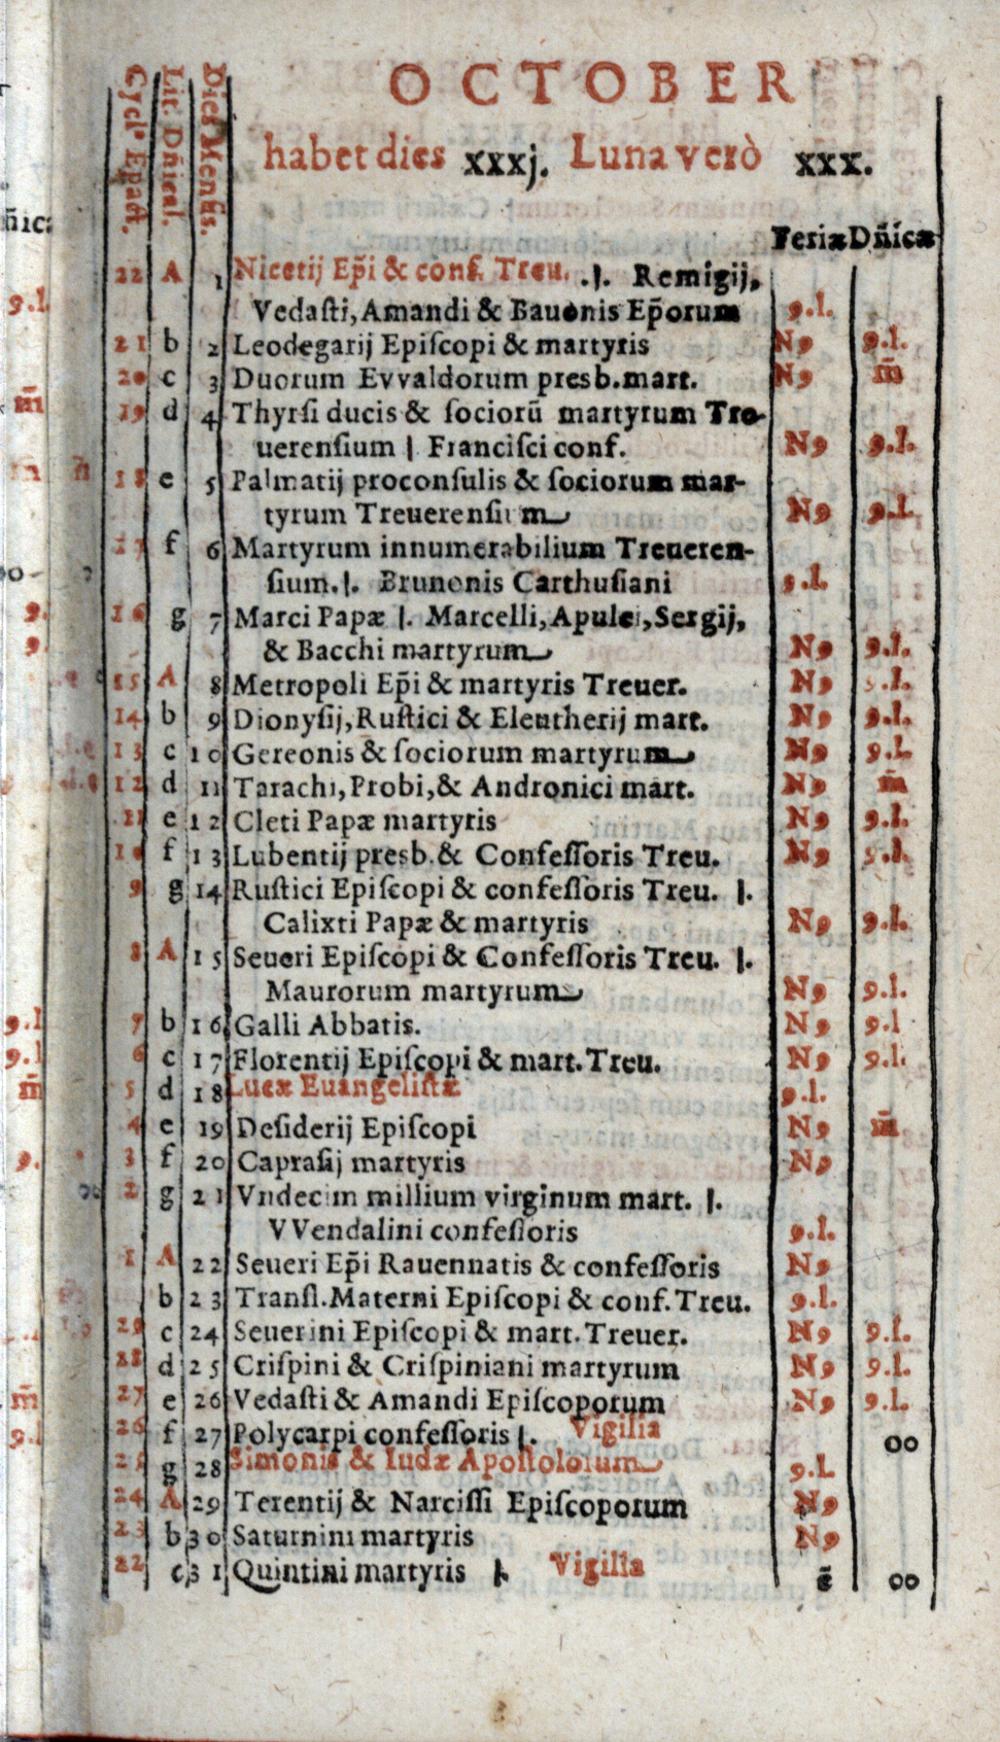 OCTOBER
habet dies xxxj. Luna verò xxx.
Cycl⁹ Epact. Lit. Dñical. Dies Mensis. Feriæ Dñicæ
22 A 1 Nicetij Ep̃i & conf. Treu. .|. Remigij,
Vedaſti, Amandi & Bauonis Ep̃orum 9.l.
21 b 2 Leodegarij Epiſcopi & martyris N9 9.l.
20 c 3 Duorum Evvaldorum presb. mart. N9 m̃
19 d 4 Thyrſi ducis & ſociorũ martyrum Tre-
uerenſium | Franciſci conf. N9 9.l.
18 e 5 Palmatij proconſulis & ſociorum mar-
tyrum Treuerenſium N9 9.l.
17 f 6 Martyrum innumerabilium Treueren-
ſium. |. Brunonis Carthuſiani 9.l.
16 g 7 Marci Papæ |. Marcelli, Apulei, Sergij,
& Bacchi martyrum N9 9.l.
15 A 8 Metropoli Ep̃i & martyris Treuer. N9 9.l.
14 b 9 Dionyſij, Ruſtici & Eleutherij mart. N9 9.l.
13 c 10 Gereonis & ſociorum martyrum N9 9.l.
12 d 11 Tarachi, Probi, & Andronici mart. N9 m̃
11 e 12 Cleti Papæ martyris N9 9.l.
10 f 13 Lubentij presb. & Confeſſoris Treu. N9 9.l.
9 g 14 Ruſtici Epiſcopi & confeſſoris Treu. |.
Calixti Papæ & martyris N9 9.l.
8 A 15 Seueri Epiſcopi & Confeſſoris Treu. |.
Maurorum martyrum N9 9.l.
7 b 16 Galli Abbatis. N9 9.l
6 c 17 Florentij Epiſcopi & mart. Treu. N9 9.l.
5 d 18 Lucæ Euangeliſtæ 9.l.
4 e 19 Deſiderij Epiſcopi N9 m̃
3 f 20 Capraſij martyris N9
2 g 21 Vndecim millium virginum mart. |.
VVendalini confeſſoris 9.l.
1 A 22 Seueri Ep̃i Rauennatis & confeſſoris N9
b 23 Tranſl. Materni Epiſcopi & conf. Treu. 9.l.
29 c 24 Seuerini Epiſcopi & mart. Treuer. N9 9.l.
28 d 25 Criſpini & Criſpiniani martyrum N9 9.l.
27 e 26 Vedaſti & Amandi Epiſcoporum N9 9.l.
26 f 27 Polycarpi confeſſoris |. Vigilia oo
25 g 28 Simonis & Iudæ Apoſtolorum 9.l.
24 A 29 Terentij & Narciſſi Epiſcoporum N9
23 b 30 Saturnini martyris N9
22 c 31 Quintini martyris |. Vigilia ẽ oo